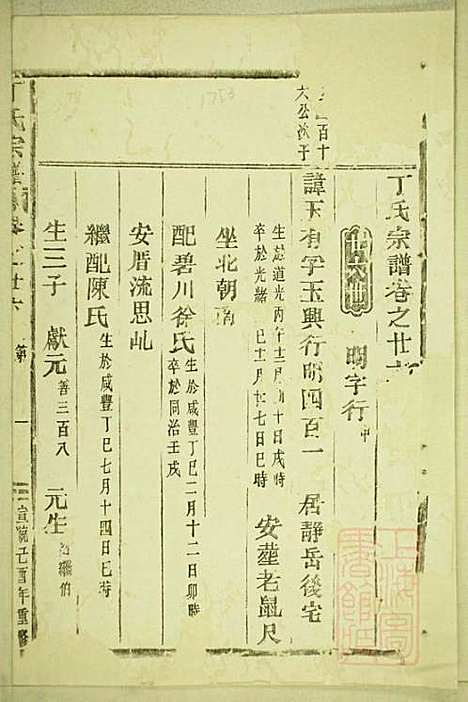 丁氏宗譜卷之廿六
廿六世 明字行 中
諱玉有字玉興行明四百一 居靜岳後宅
生於道光丙午十二月初十日戌時
卒於光緒 己十二月廿七日巳時
安葬老鼠尺
坐北朝南
配碧川徐氏
生於咸豐丁巳二月十二日卯時
卒於同治壬戌
安厝流思屾
繼配陳氏 生於咸豐丁巳七月十四日巳時
生三子 獻元 善三百八 元生 繼伯
丁氏宗譜 卷之廿六 第一 宣統己酉年重修